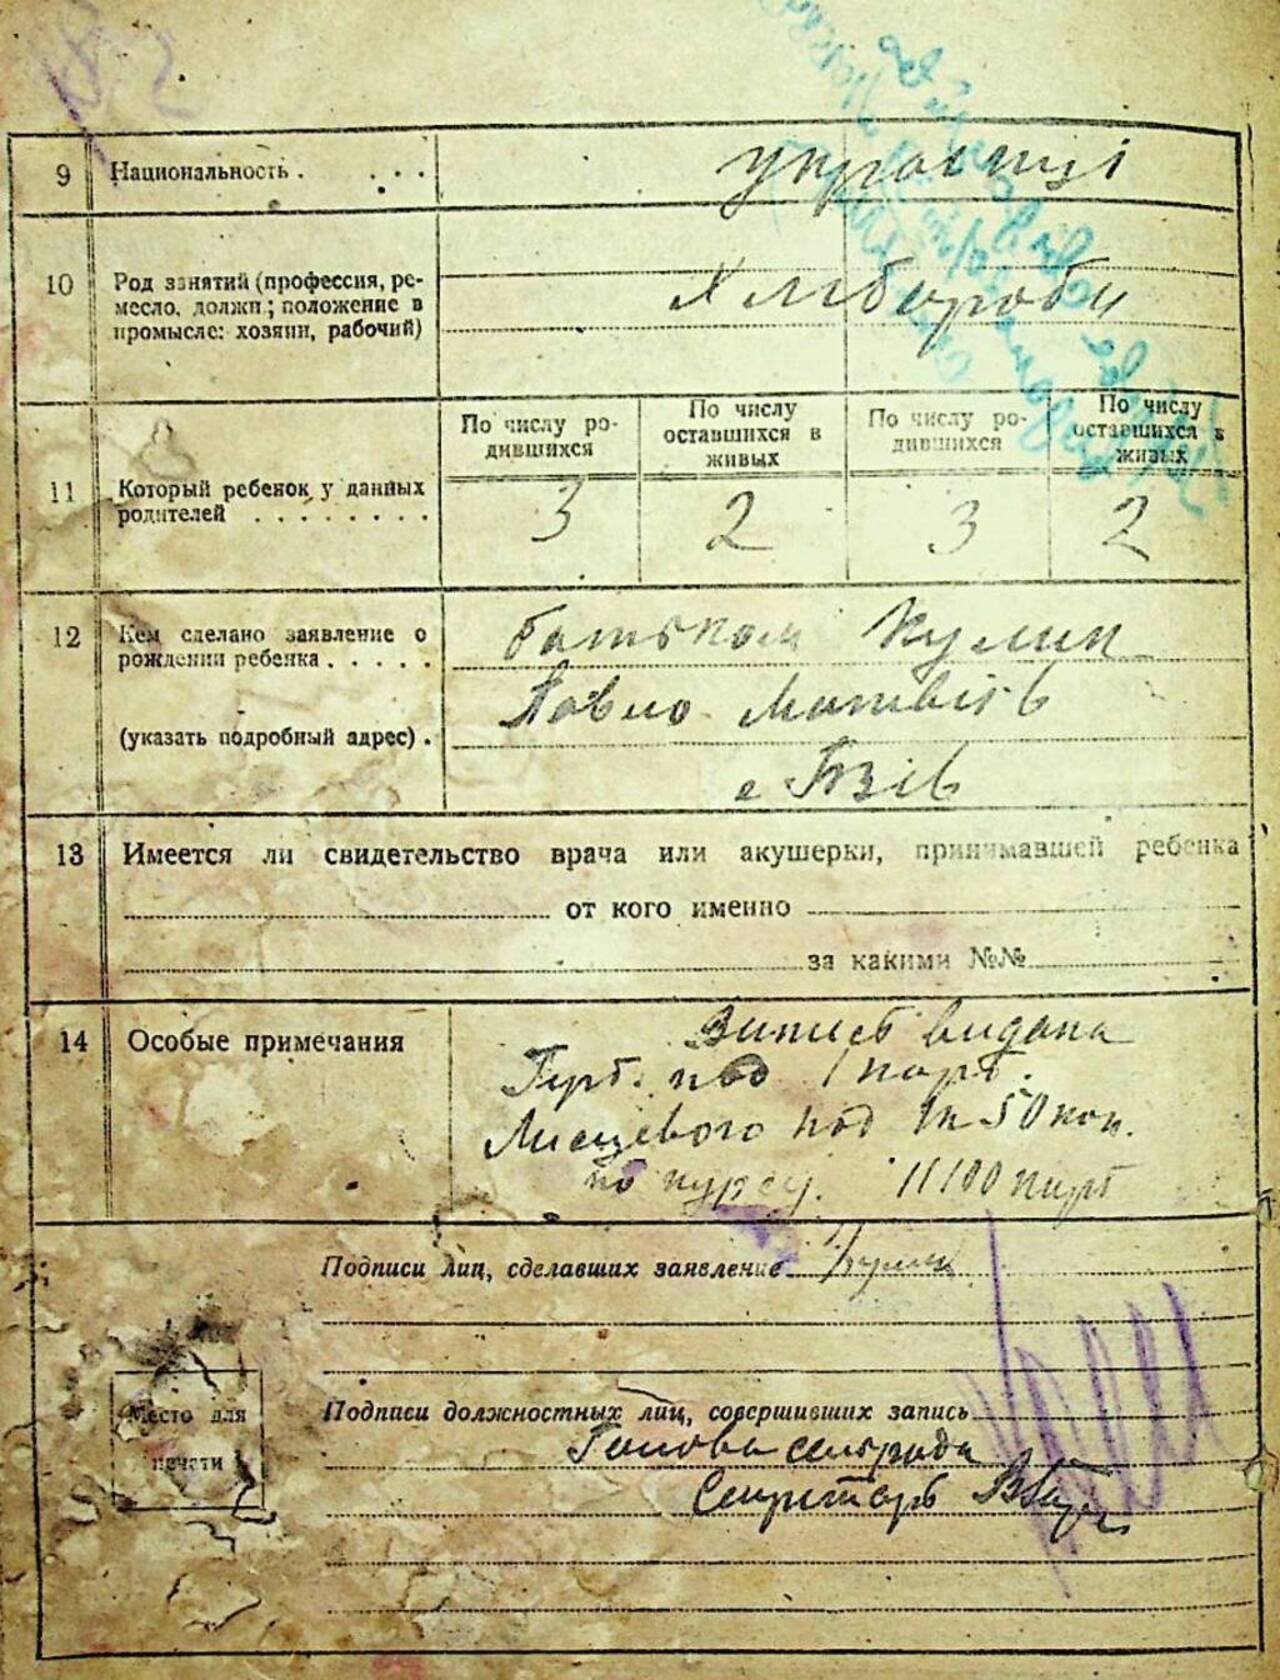 9 Национальность . . . . українці
10 Род занятий (профессия, ре-
месло, должн; положение в
промысле: хозяин, рабочий)
Хлібороби
По числу ро-
дившихся
По числу
оставшихся в
живых
По числу ро-
дившихся
По числу
оставшихся в
живых
11 Который ребенок у данных
родителей . . . . . . . .
3 2 3 2
12 Кем сделано заявление о
рождении ребенка . . . . .
(указать подробный адрес) .
батьком Кулик
Павло Матвіів
с Бзів
13 Имеется ли свидетельство врача или акушерки, принимавшей ребенка
от кого именно
за какими №№
14 Особые примечания
Випись видана
Герб. под 1 карб.
Лисцевого под 1к 50 коп.
по курсу. 11100 карб
Подписи лиц, сделавших заявление Кулик
Подписи должностных лиц, совершивших запись
Голова сельрада
Секретарь
Место для
печати